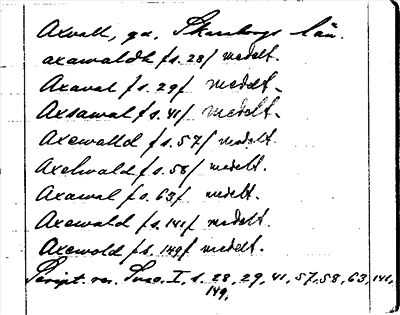 Axvall, gd. Skaraborgs län.
axawaldh /s. 28/ medelt.
Axaval /s. 29/ medelt.
Axsawal /s. 41/ medelt.
Axewalld /s. 57/ medelt.
Axehwald /s. 58/ medelt.
Axawal /s. 63/ medelt.
Axewald /s. 141/ medelt.
Axewold /s. 149/ medelt.
Script. rer. Suec. I, s. 28, 29, 41, 57, 58, 63, 141,
149,